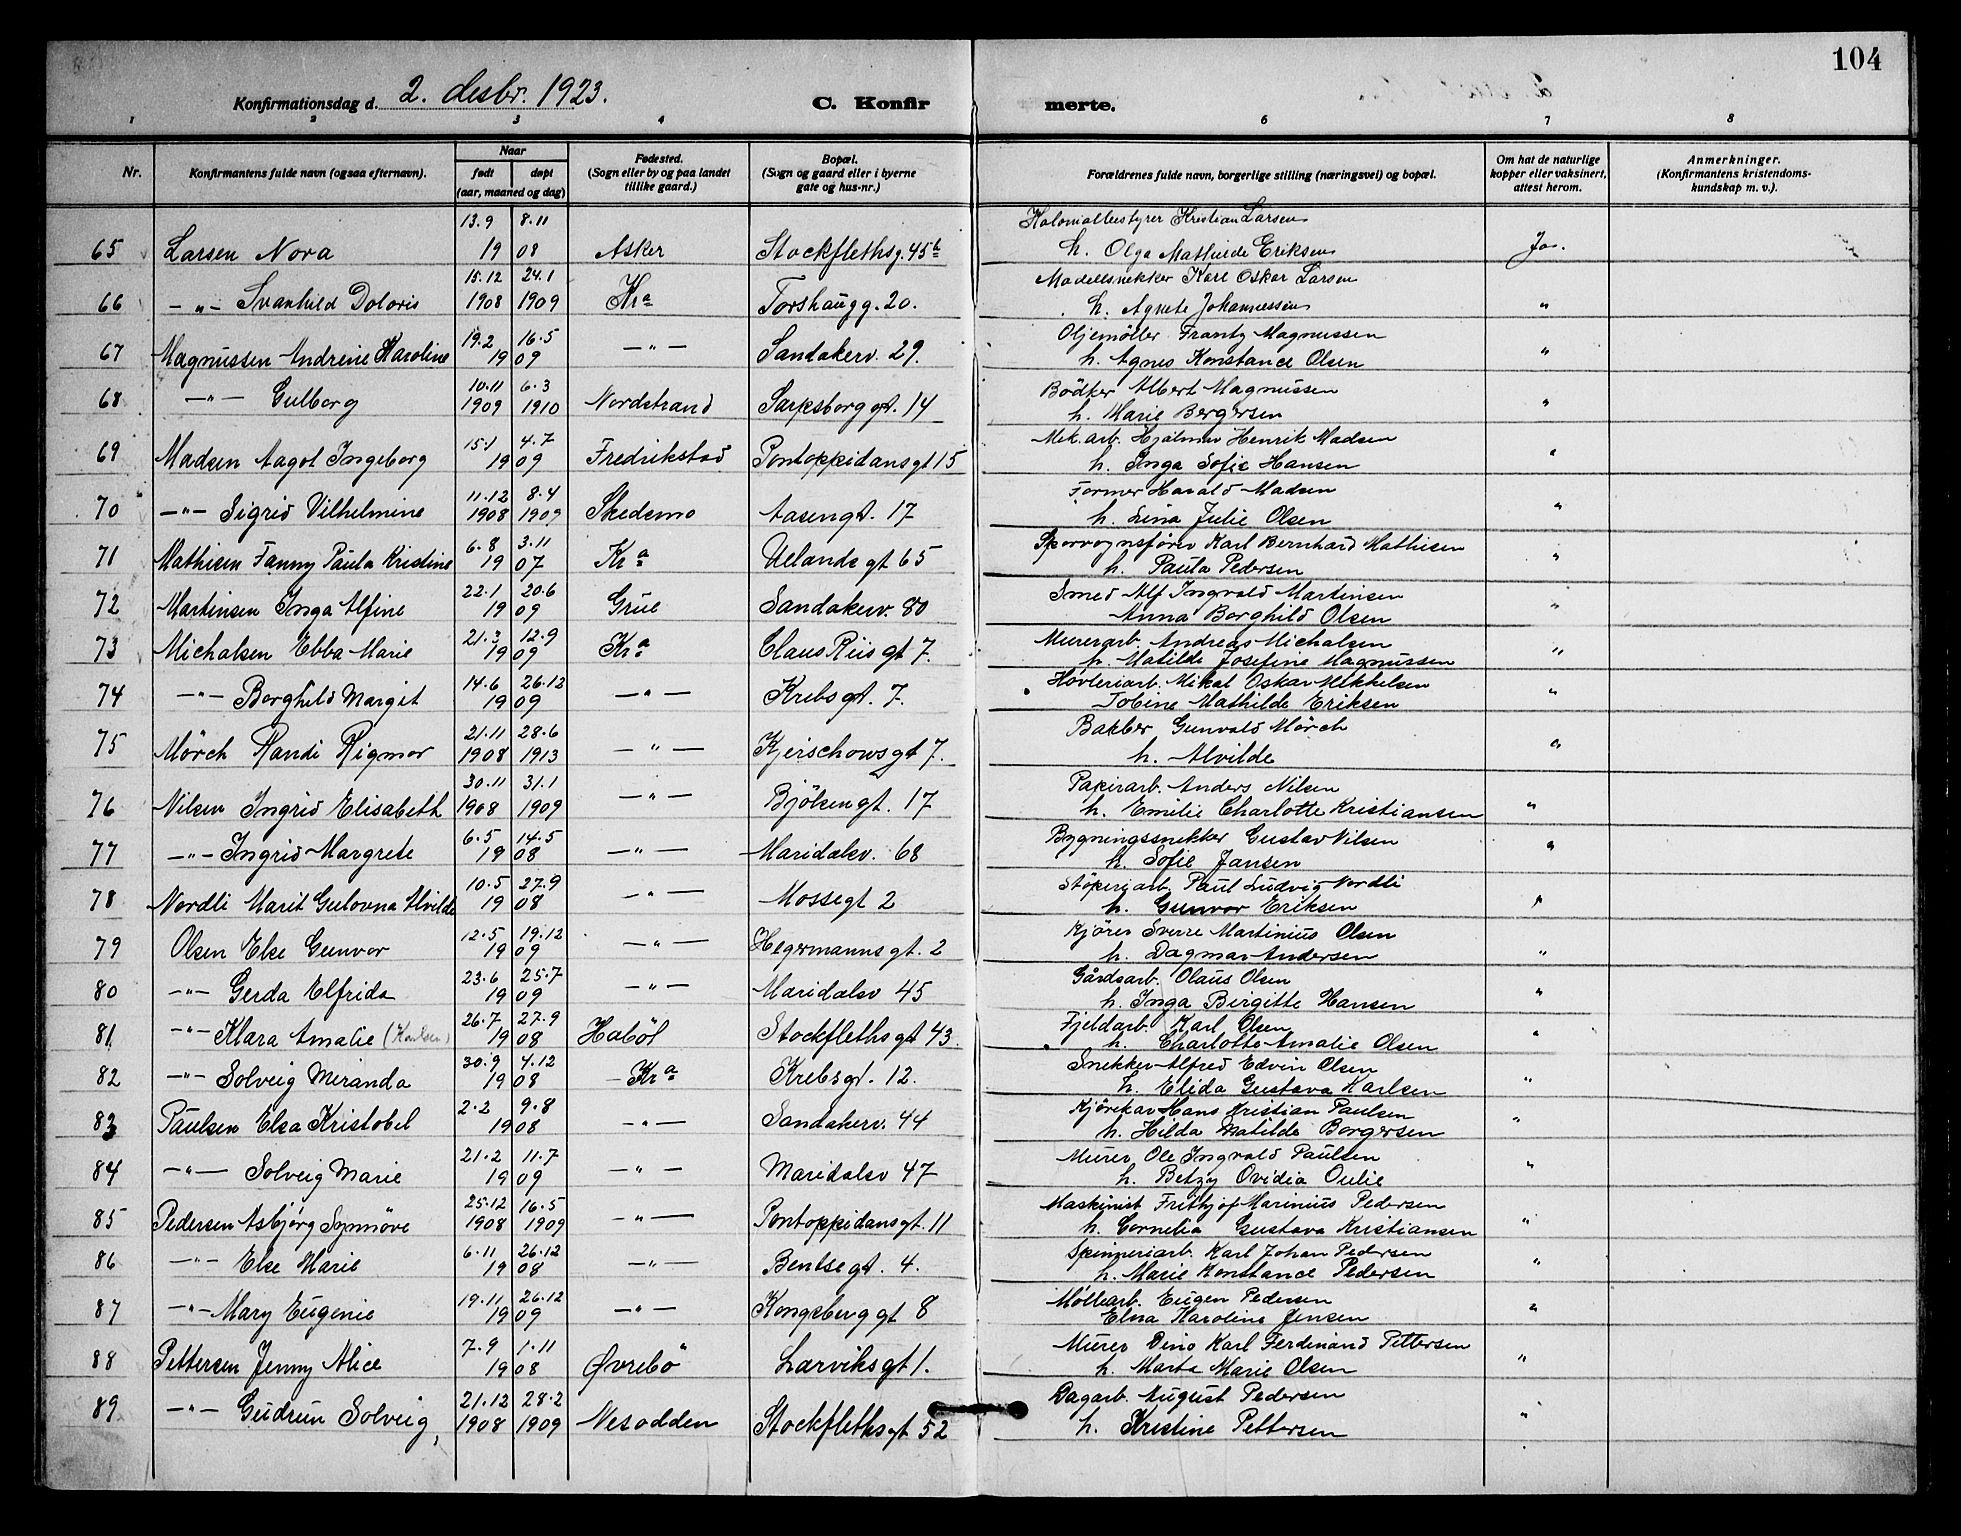 104
Konfirmationsdag d. 2. desbr. 1923. C. Konfir merte.
1 2 3 4 6 7 8
Nr. Konfirmantens fulde navn (ogsaa efternavn). Naar født døpt (aar, maaned og dag) Fødested. (Sogn eller by og paa landet tillike gaard.) Bopæl. (Sogn og gaard eller i byerne gate og hus-nr.) Forældrenes fulde navn, borgerlige stilling (næringsvei) og bopæl. Om hat de naturlige kopper eller vaksinert, attest herom. Anmerkninger. (Konfirmantens kristendoms-kundskap m. v.).
13.9 8.11 Kristian Larsen
65 Larsen Nora 19 08 Asker Stockflethsg. 45b h. Olga Mathilde Eriksen Ja.
15.12 24.1 Modellsnekker Karl Oskar Larsen
66 -"- Svanhild Doloris 1908 1909 Kra Torshaugg. 20. h. Agnete Johannessen "
19.2 16.5 Oljemöller Frantz Magnussen
67 Magnussen Andreine Karoline 19 09 -"- Sandakerv. 29. h. Agnes Konstance Olsen "
10.11 6.3 Bödker Albert Magnussen
68 -"- Gulborg 1909 1910 Nordstrand Sarpsborggt. 14 h. Marie Bergersen "
15.1 4.7 Mek. arb. Hjalmar Henrik Madsen
69 Madsen Aagot Ingeborg 19 09 Fredrikstad Pontoppidansgt 15 h. Inga Sofie Hansen "
11.12 8.4 Former Harald Madsen
70 -"- Sigrid Vilhelmine 1908 1909 Skedsmo Aasengt. 17 h. Lina Julie Olsen "
6.8 3.11 Sporvognsfører Karl Bernhard Mathisen
71 Mathisen Fanny Paula Kristine 19 07 Kra Uelandsgt 65 h. Paula Pedersen "
22.1 20.6 Smed Alf Ingvald Martinsen
72 Martinsen Inga Alfine 19 09 Grue Sandakerv. 80 Anna Borghild Olsen "
21.3 12.9 Murerarb. Andreas Michalsen
73 Michalsen Ebba Marie 19 09 Kra Claus Riis gt 7. h. Matilde Josefine Magnussen "
14.6 26.12 Høvleriarb. Mikal Oskar Mikkelsen
74 -"- Borghild Margit 19 09 -"- Krebsgt. 7. Tobine Mathilde Eriksen "
21.11 28.6 Gunvald Mörch
75 Mörch Randi Rigmor 1908 1913 -"- Kjerschowsgt 7. h. Alvilde "
30.11 31.1 Papirarb. Anders Nilsen
76 Nilsen Ingrid Elisabeth 1908 1909 -"- Bjölsengt. 17 h. Emilie Charlotte Kristiansen "
6.5 14.5 Bygningssnekker Gustav Nilsen
77 -"- Ingrid Margrete 19 08 -"- Maridalsv. 68 h. Sofie Jansen "
10.5 27.9 Støperiarb. Paul Ludvig Nordli
78 Nordli Marit Gulovna Alvilde 19 08 -"- Mossegt 2 h. Gunvor Eriksen "
12.5 19.12 Kjører Sverre Martinius Olsen
79 Olsen Else Gunvor 19 09 -"- Hegermannsgt. 2 h. Dagmar Andersen "
23.6 25.7 Gårdsarb. Olaus Olsen
80 -"- Gerda Elfrida 19 09 -"- Maridalsv 45 h. Inga Birgitte Hansen "
26.7 27.9 Fjeldarb. Karl Olsen
81 -"- Klara Amalie (Karlsen) 19 08 Haböl Stockflethsgt 43. h. Charlotte Amalie Olsen "
30.9 4.12 Snekker Alfred Edvin Olsen
82 -"- Solveig Miranda 19 08 Kra Krebsgt. 12. h. Elida Gustava Karlsen "
2.2 9.8 Hans Kristian Paulsen
83 Paulsen Elsa Kristobel 19 08 -"- Sandakerv. 44 h. Hilda Matilde Borgersen "
21.2 11.7 Murer Ole Ingvald Paulsen
84 -"- Solveig Marie 19 09 -"- Maridalsv 47 h. Betzy Ovidia Oulie "
25.12 16.5 Maskinist Frithjof Marinius Pedersen
85 Pedersen Asbjørg Synnöve 1908 1909 -"- Pontoppidansgt. 11 h. Cornelia Gustava Kristiansen "
6.11 26.12 Spinneriarb. Karl Johan Pedersen
86 -"- Else Marie 19 08 -"- Bentsegt. 4. h. Marie Konstance Pedersen "
19.11 26.12 Møllearb. Eugen Pedersen
87 -"- Mary Eugenie 19 09 -"- Kongsberggt 8 Elna Karoline Jensen "
7.9 1.11 Murer Karl Ferdinand Pettersen
88 Pettersen Jenny Alice 19 08 Øvrebö Larviksgt 1. h. Marta Marie Olsen "
21.12 28.2 Dagarb. August Pedersen
89 -"- Gudrun Solveig, 1908 1909 Nesodden Stockflethsgt 52 h. Kristine Pettersen "